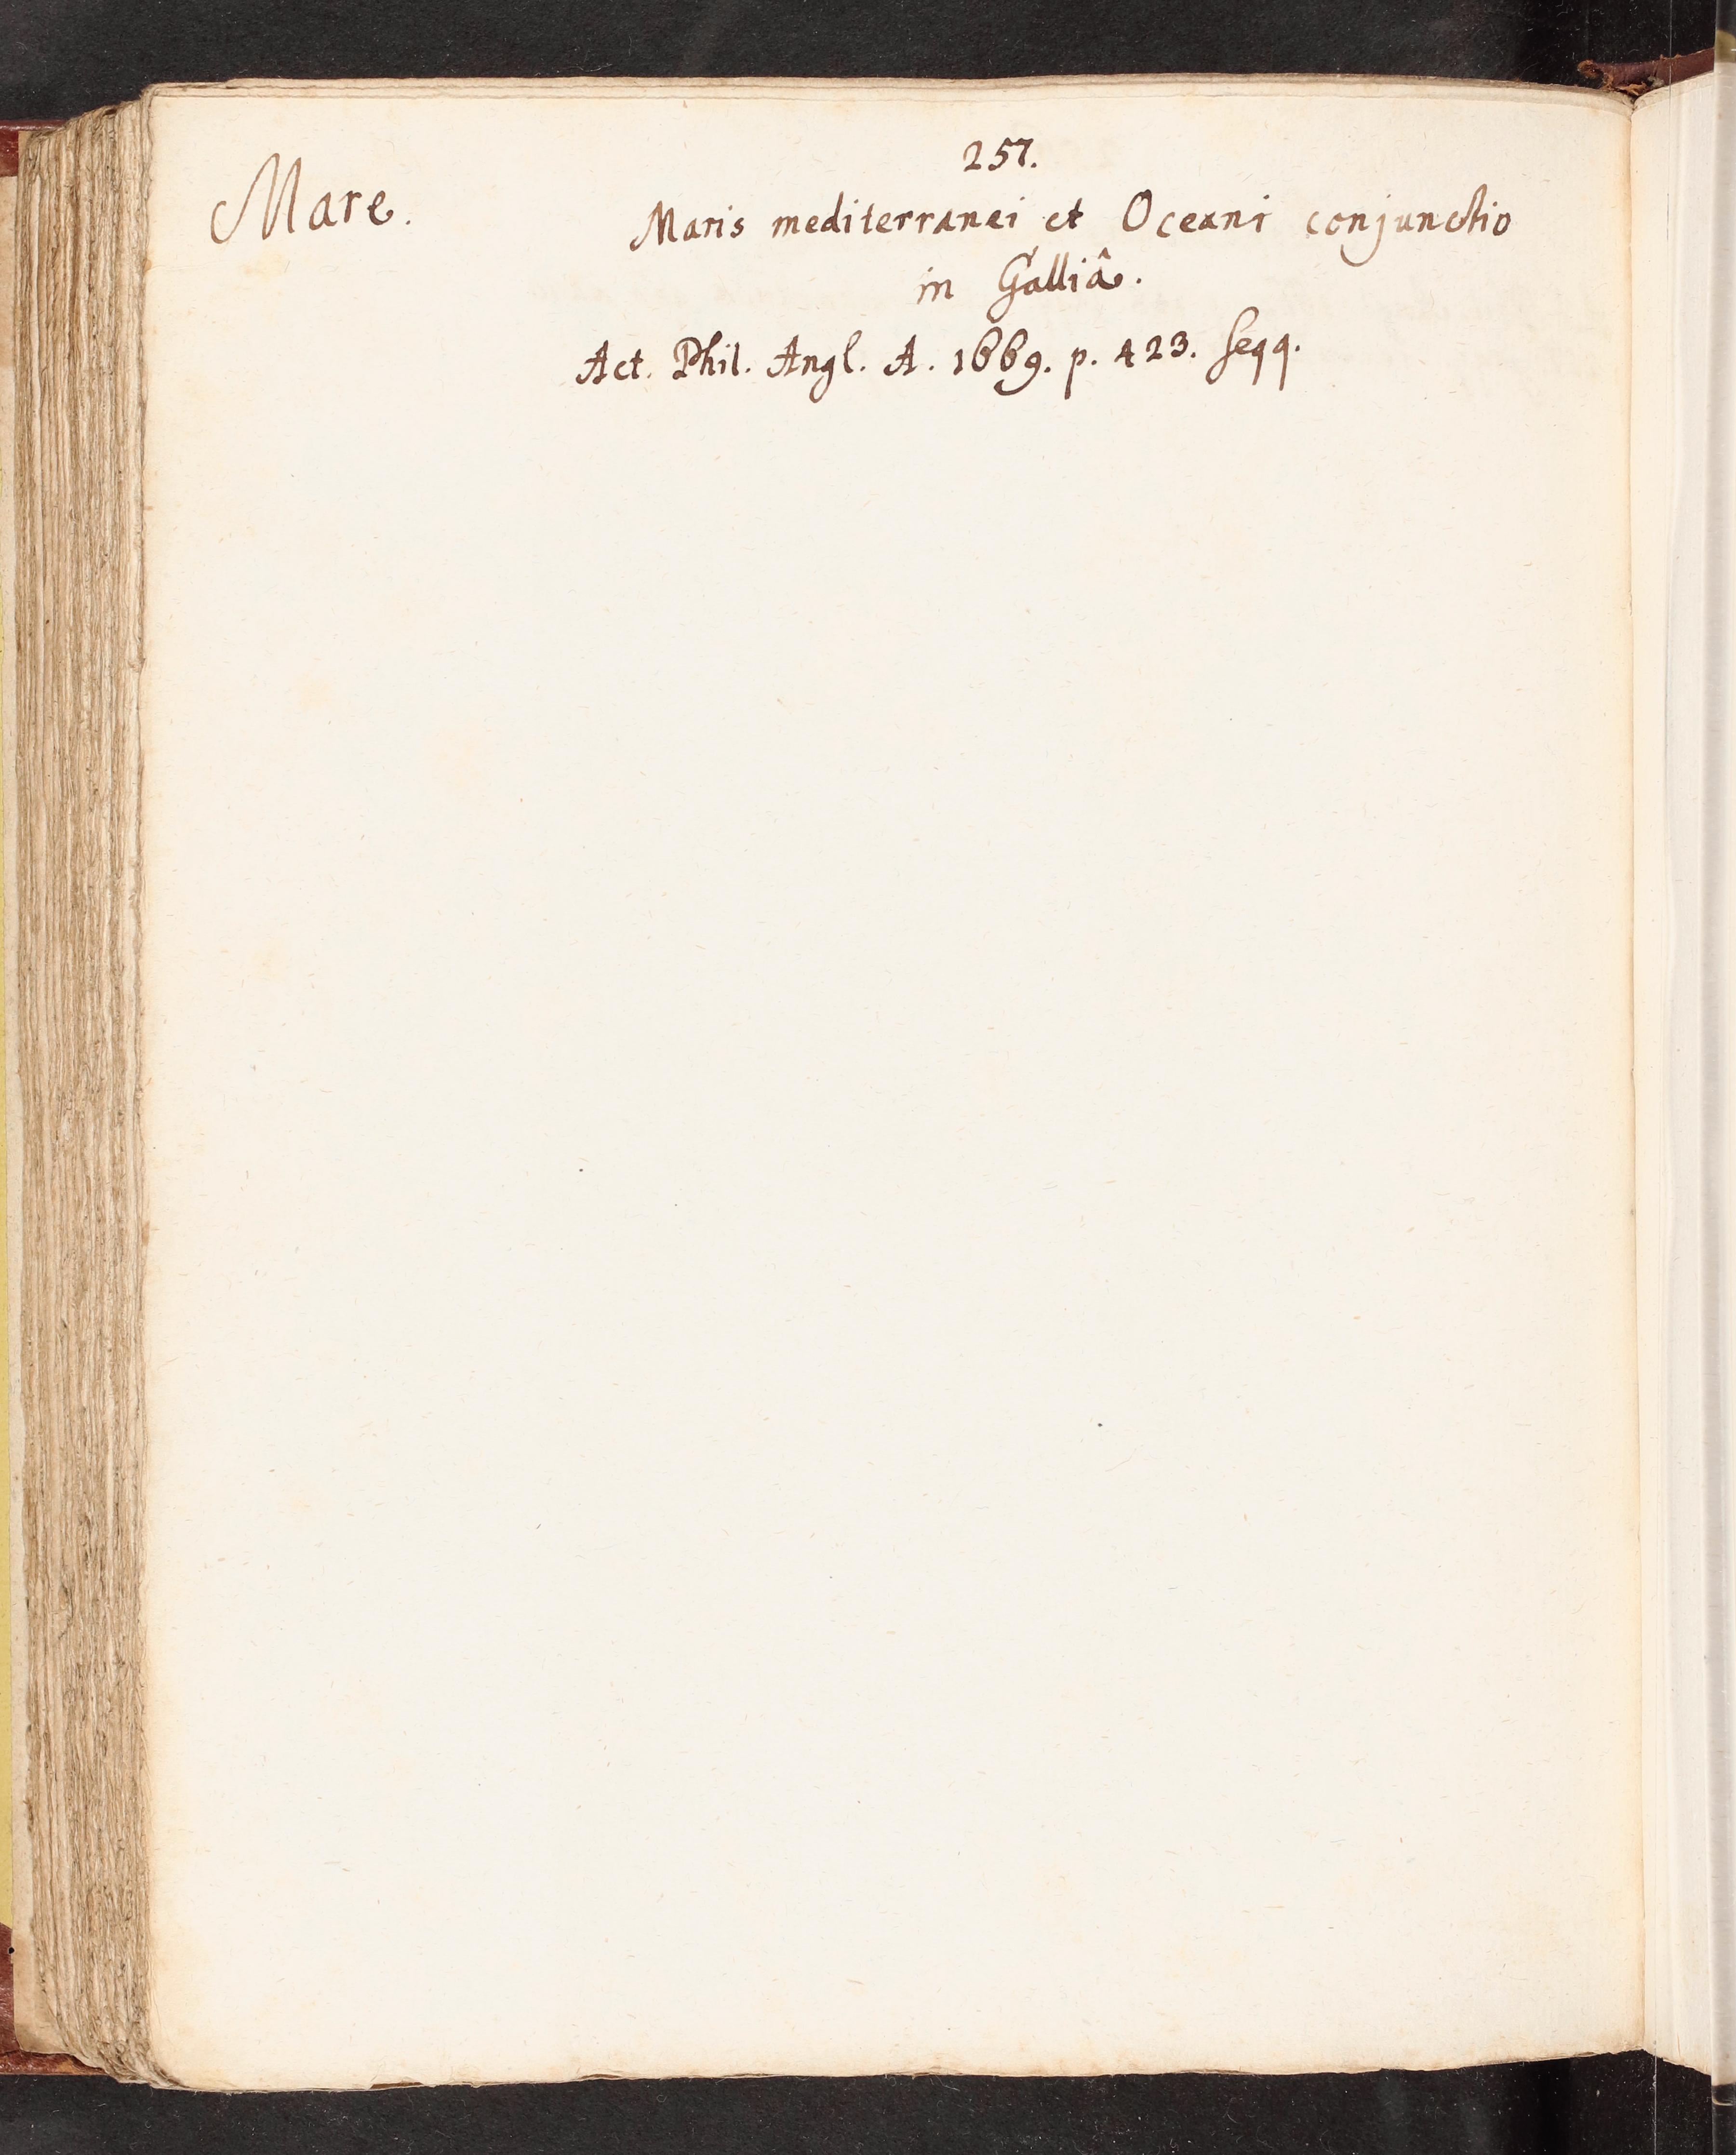 257.
Mare.
Maris mediterranei et Oceani conjunctio
in Galliâ.
Act. Phil. Angl. A. 1669. p. 423. seqq.